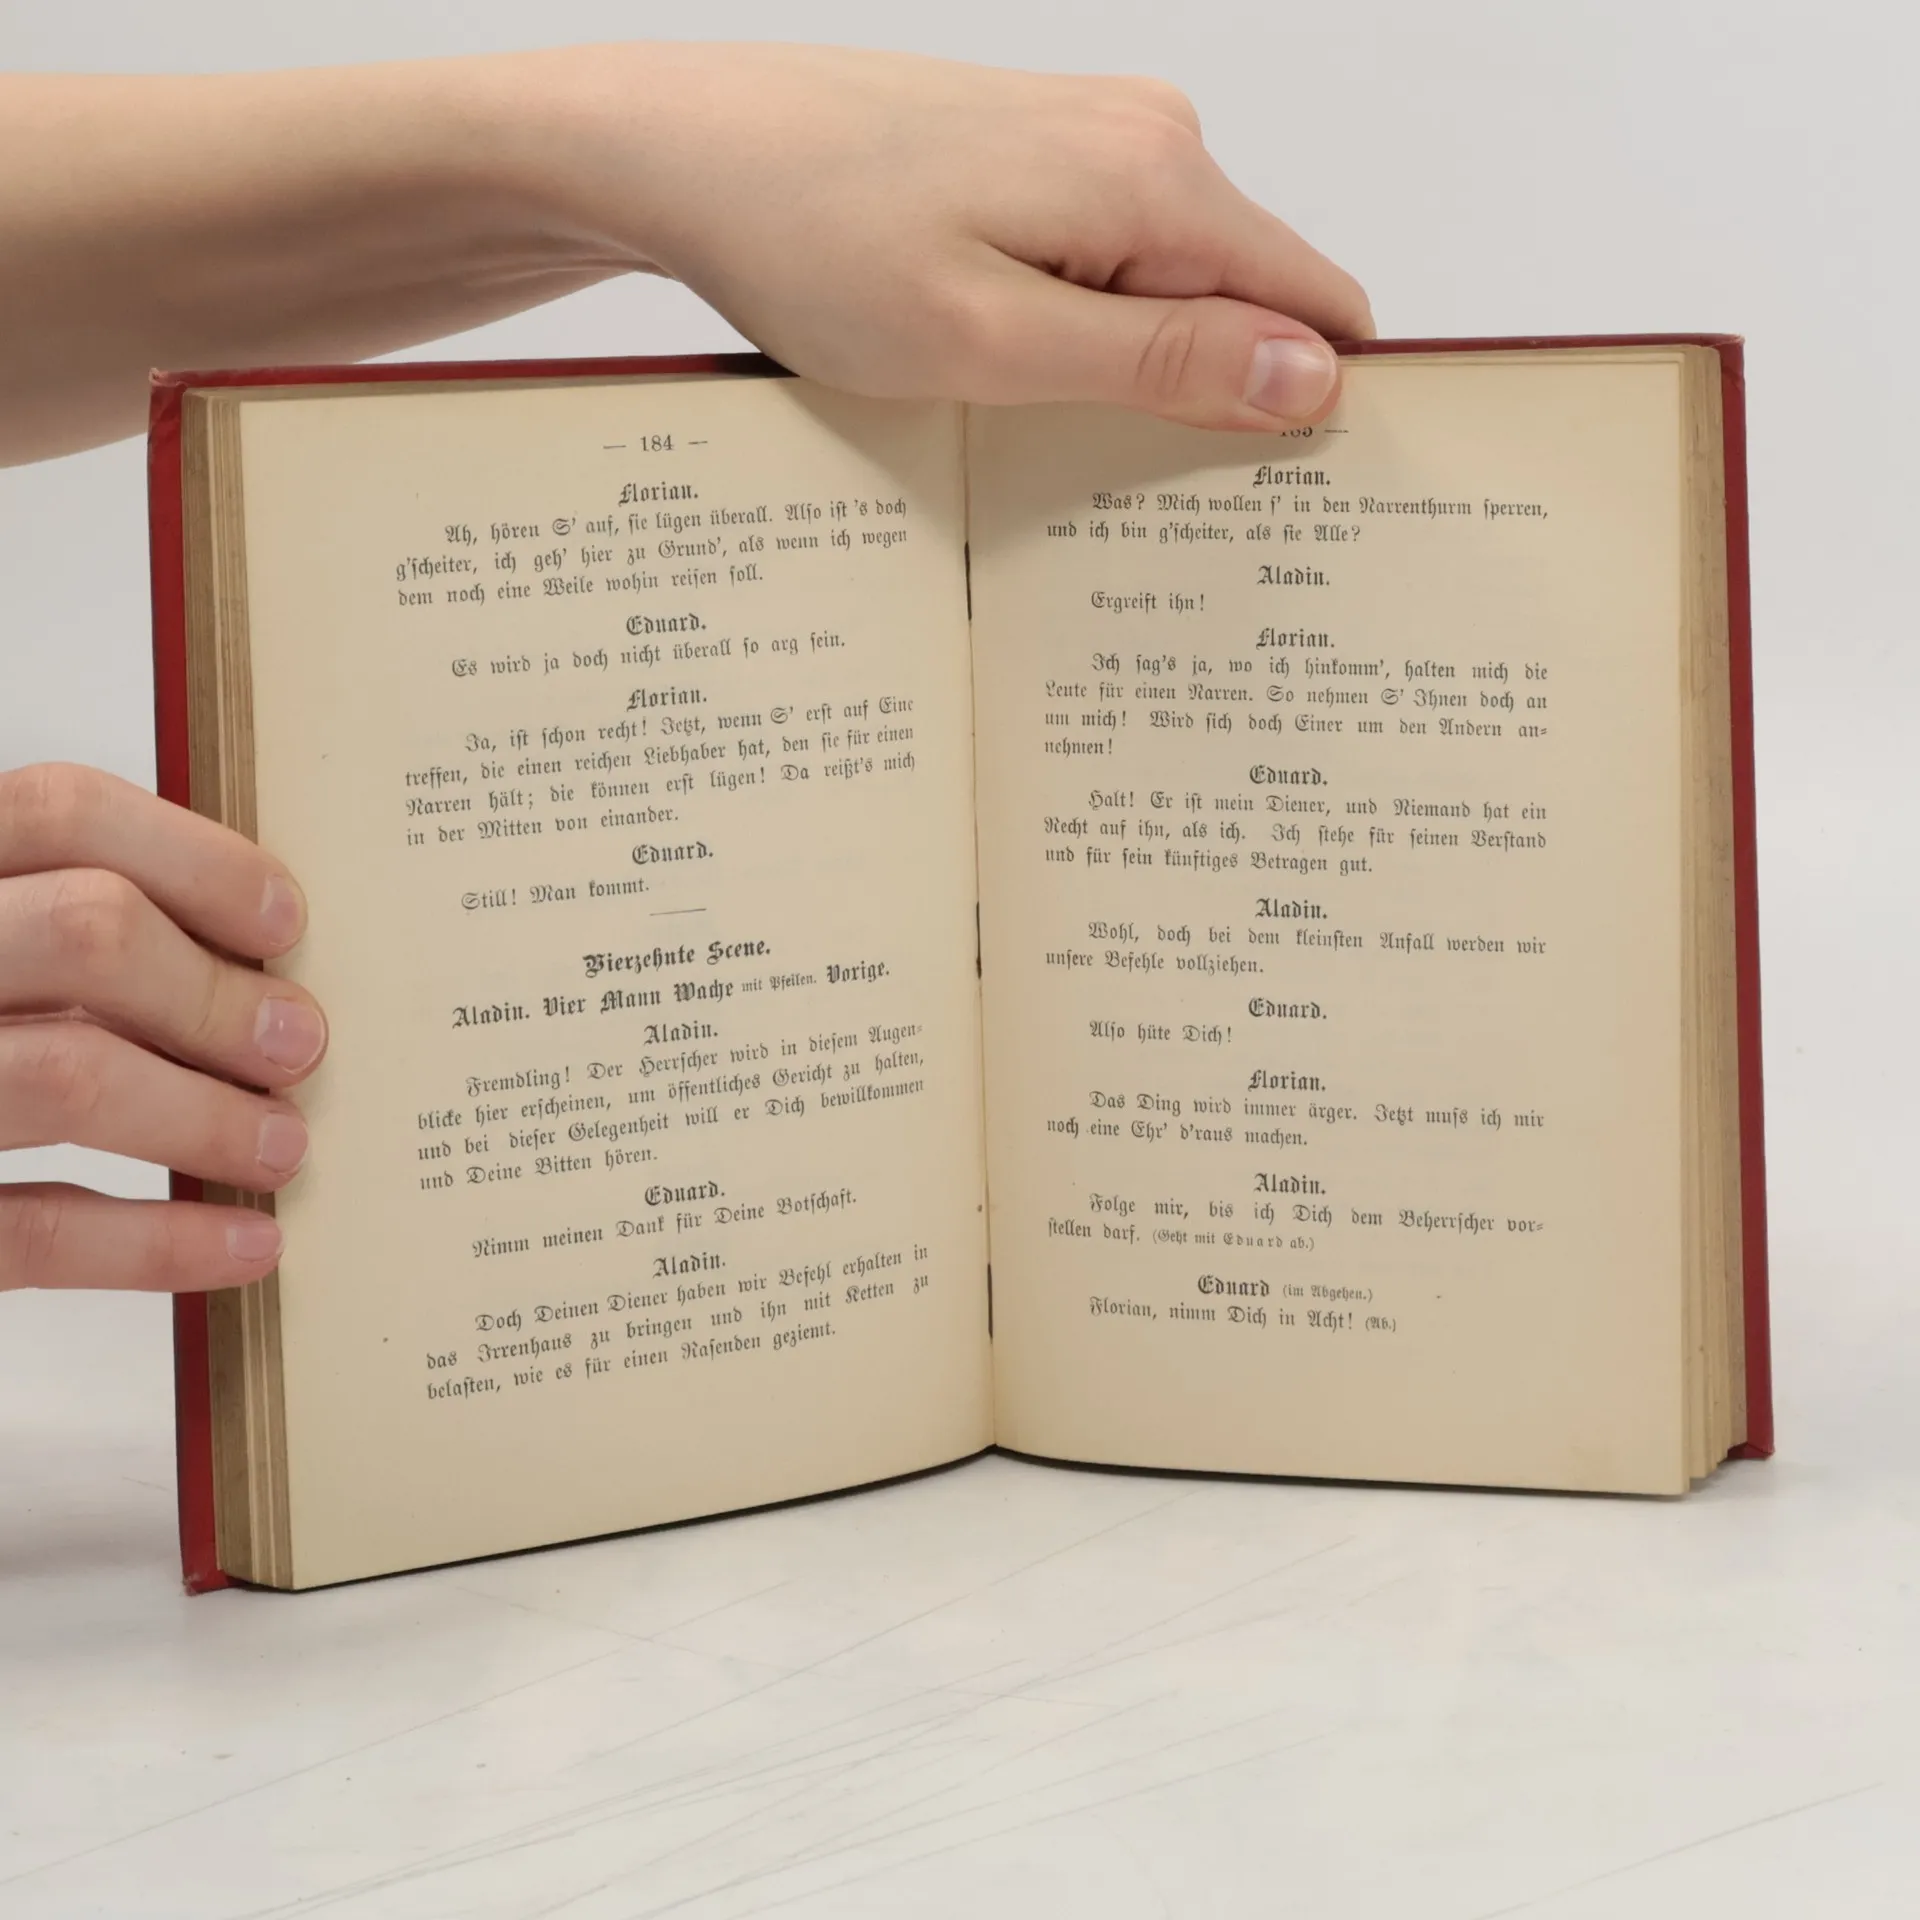 — 184 —
Florian.
Ah, hören S' auf, sie lügen überall. Also ist 's doch
g'scheiter, ich geh' hier zu Grund', als wenn ich wegen
dem noch eine Weile wohin reisen soll.
Eduard.
Es wird ja doch nicht überall so arg sein.
Florian.
Ja, ist schon recht! Jetzt, wenn S' erst auf Eine
treffen, die einen reichen Liebhaber hat, den sie für einen
Narren hält; die können erst lügen! Da reißt's mich
in der Mitten von einander.
Eduard.
Still! Man kommt.
Vierzehnte Scene.
Aladin. Vier Mann Wache mit Pfeilen. Vorige.
Aladin.
Fremdling! Der Herrscher wird in diesem Augen-
blicke hier erscheinen, um öffentliches Gericht zu halten,
und bei dieser Gelegenheit will er Dich bewillkommen
und Deine Bitten hören.
Eduard.
Nimm meinen Dank für Deine Botschaft.
Aladin.
Doch Deinen Diener haben wir Befehl erhalten in
das Irrenhaus zu bringen und ihn mit Ketten zu
belasten, wie es für einen Rasenden geziemt.
185 —
Florian.
Was? Mich wollen s' in den Narrenthurm sperren,
und ich bin g'scheiter, als sie Alle?
Aladin.
Ergreift ihn!
Florian.
Ich sag's ja, wo ich hinkomm', halten mich die
Leute für einen Narren. So nehmen S' Ihnen doch an
um mich! Wird sich doch Einer um den Andern an-
nehmen!
Eduard.
Halt! Er ist mein Diener, und Niemand hat ein
Recht auf ihn, als ich. Ich stehe für seinen Verstand
und für sein künftiges Betragen gut.
Aladin.
Wohl, doch bei dem kleinsten Anfall werden wir
unsere Befehle vollziehen.
Eduard.
Also hüte Dich!
Florian.
Das Ding wird immer ärger. Jetzt muss ich mir
noch eine Ehr' d'raus machen.
Aladin.
Folge mir, bis ich Dich dem Beherrscher vor-
stellen darf. (Geht mit Eduard ab.)
Eduard (im Abgehen.)
Florian, nimm Dich in Acht! (Ab.)